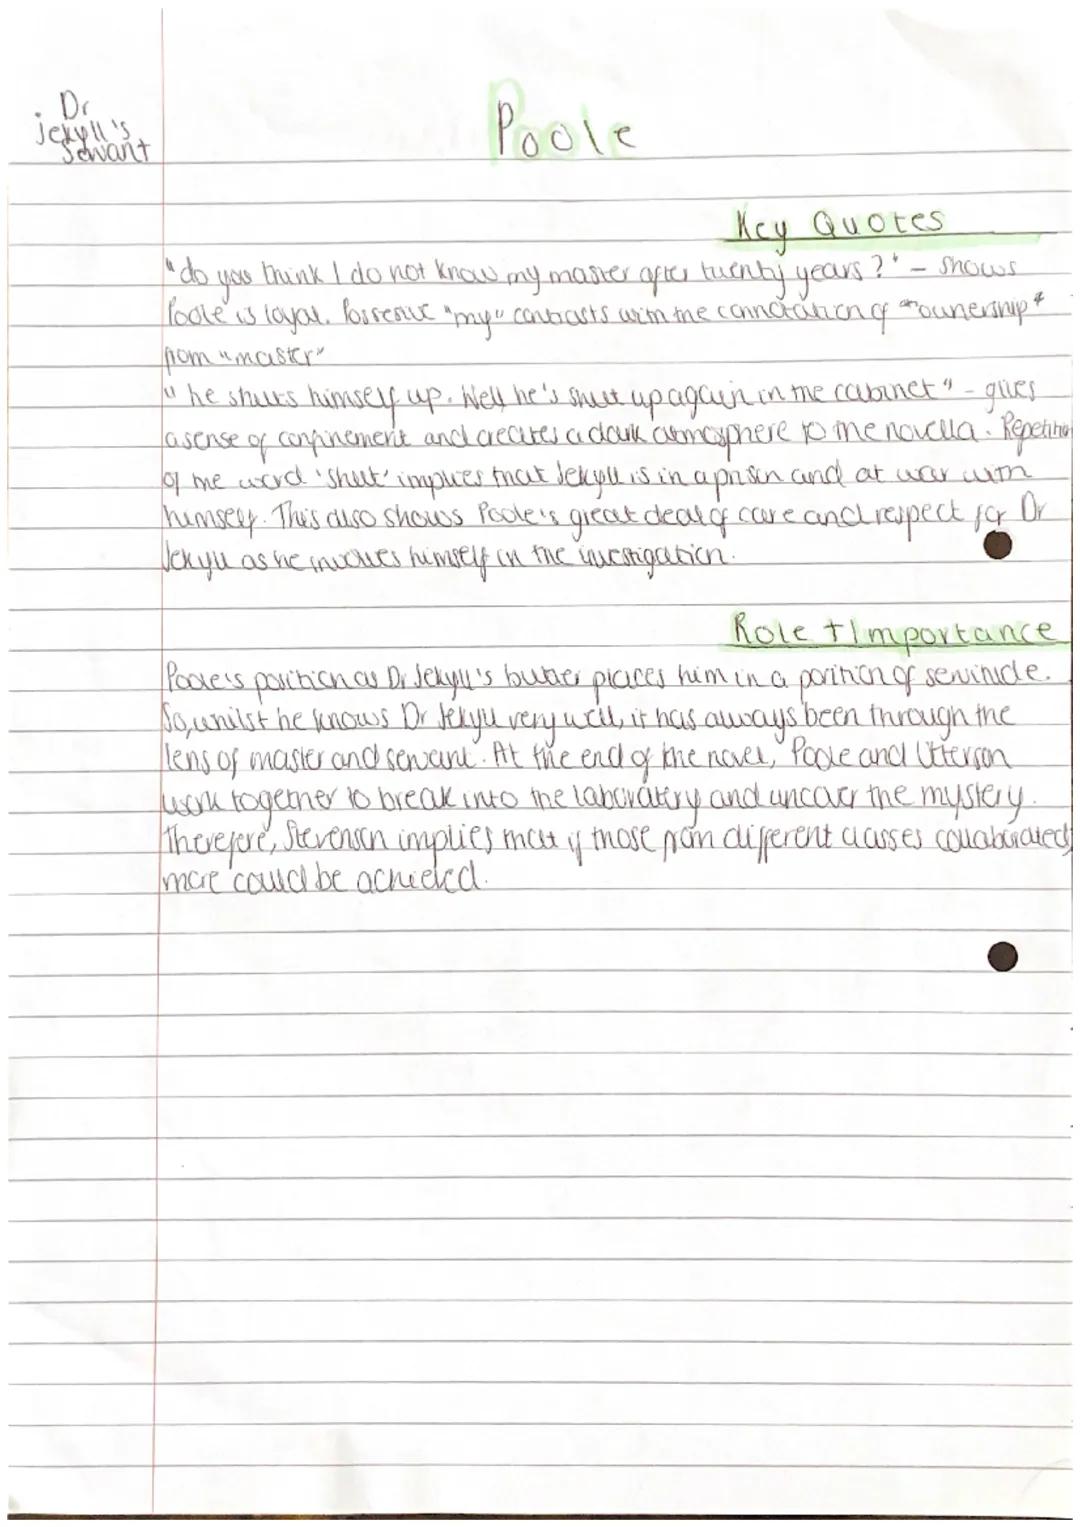 Dr
jekyll's
Servant
Poole
Key Quotes
"do you think I do not know my master after twenty years?" - shows
Poole is loyal. Possessive "my" contrasts with the connotation of "ownership"
from "master"
"he shuts himself up. Well he's shut up again in the cabinet" - gives
a sense of confinement and creates a dark atmosphere to the novella. Repetition
of the word 'shut' implies that Jekyll is in a prison and at war with
himself. This also shows Poole's great deal of care and respect for Dr
Jekyll as he involves himself in the investigation.
Role + Importance
Poole's position as Dr Jekyll's butler places him in a position of servitude.
So, whilst he knows Dr Jekyll very well, it has always been through the
lens of master and servant. At the end of the novel, Poole and Utterson
work together to break into the laboratory and uncover the mystery.
Therefore, Stevenson implies that if those from different classes collaborated,
more could be achieved.